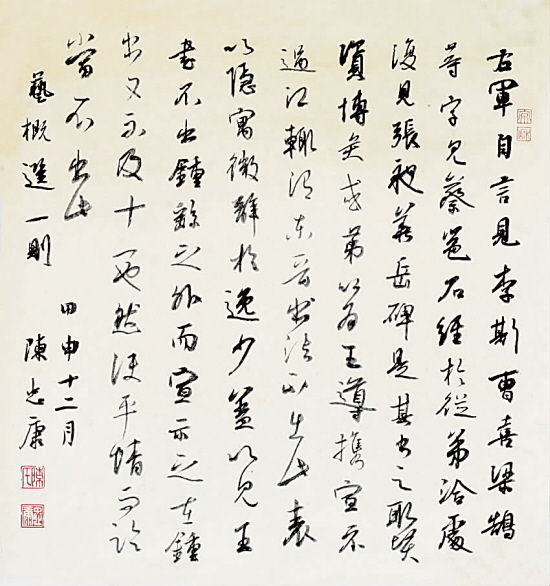 右軍自言見李斯曹喜梁鵠
等字見蔡邕石經於從弟洽處
復見張昶華岳碑是其書之取
資博矣或第以為王導攜宣示
過江輒謂東晉書法不出此表
以隱寓微辭於逸少蓋以見王
書不出鍾繇之外而宣示之在鍾
書又不及十一也然使平情而論
當不出此
藝概選一則
甲申十二月
陳忠康